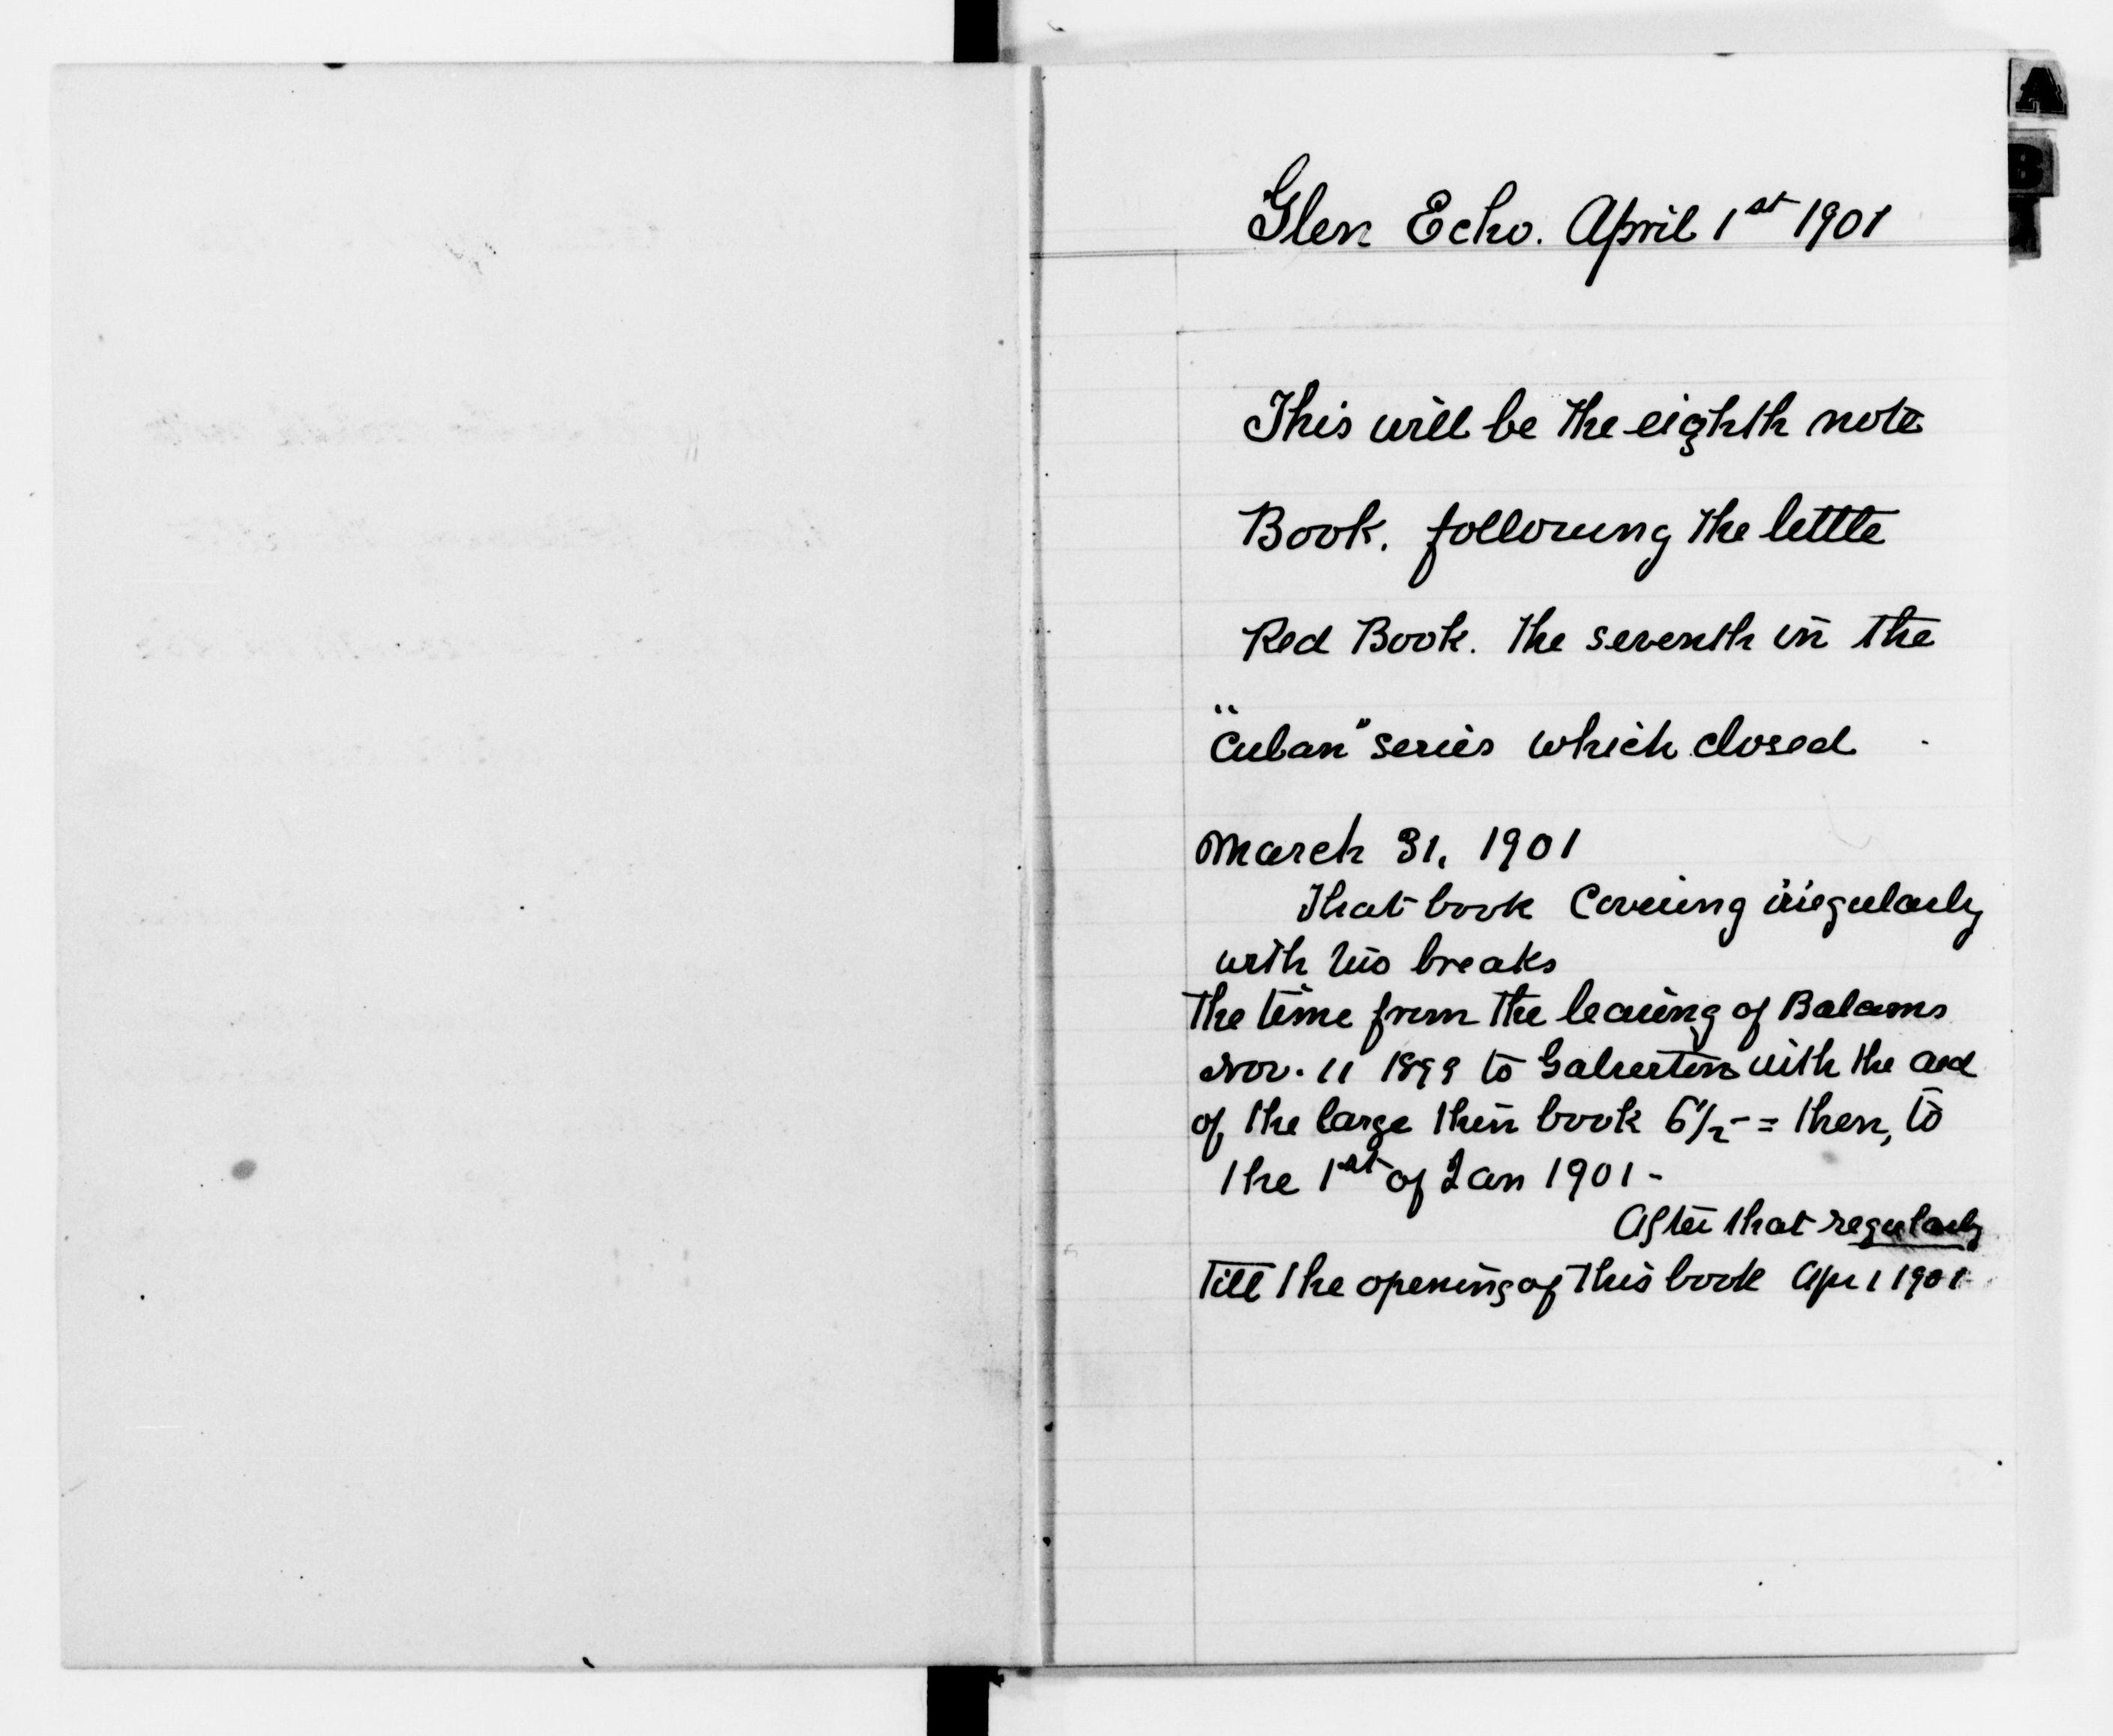 Glen Echo. April 1st 1901
This will be the eighth note
Book. following the little
Red Book. The seventh in the
"Cuban" series which closed
March 31, 1901
That book Covering irregularly
with his breaks
the time from the leaving of Balams
Nov. 11 1899 to Galveston with the aid
of the large thin book 6 1/2 - = then, to
the 1st of Jan 1901 -
After that regularly
till the opening of this book Apr 1 1901
A
B